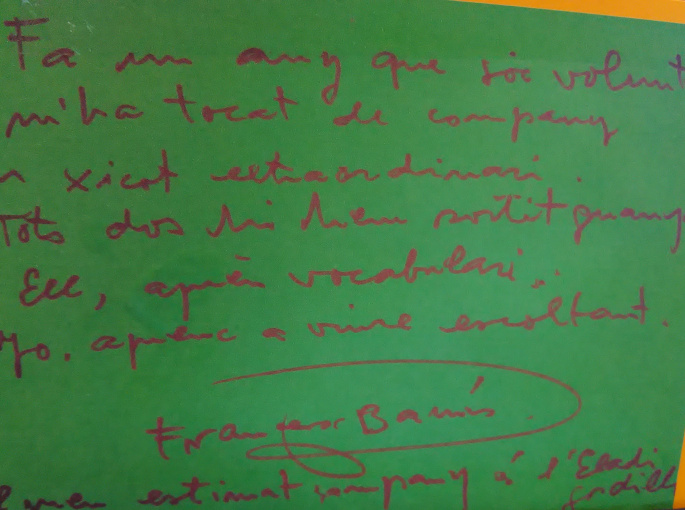 Fa un any que sóc volunt
m'ha tocat de company
n xicot extraordinari.
Tots dos hi hem sortit guany
Ell, aprèn vocabulari.
Jo. aprenc a viure escoltant.
Francesc
l meu estimat company é l'Eladi